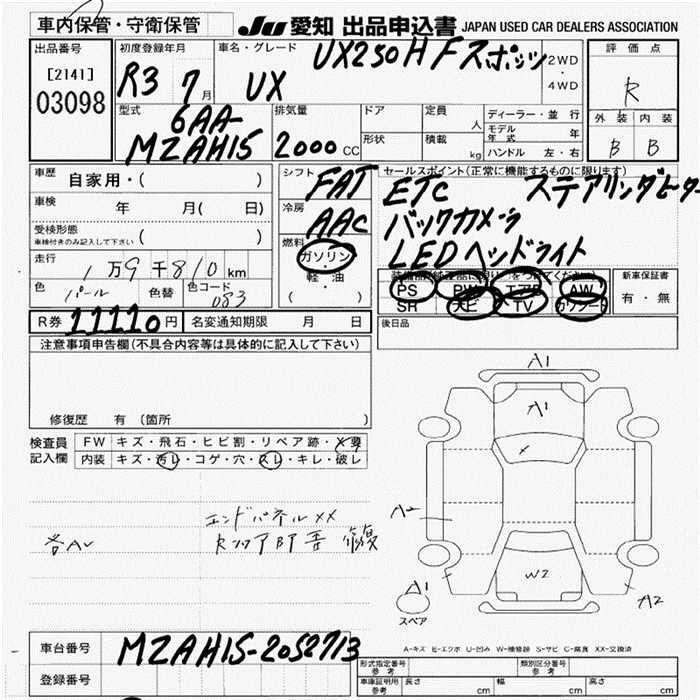 車内保管・守衛保管
JU 愛知 出品申込書 JAPAN USED CAR DEALERS ASSOCIATION
出品番号
[2141]
03098
初度登録年月
R3 7月
車名・グレード
UX250H Fスポーツ
UX
2WD
・
4WD
評価点
R
外装 内装
B B
型式
6AA-
MZAH15
排気量
2000 CC
ドア
形状
定員
人
積載
kg
ディーラー・並行
モデル年式 年
ハンドル 左・右
車歴
自家用・( )
車検
年 月( 日)
受検形態
車検付きのみ記入して下さい ( )
走行
1万9千810km
色 パール 色替 色コード 083
シフト FAT
冷房 AAC
燃料
ガソリン
・
軽・油
( )
セールスポイント(正常に機能するものに限ります)
ETC ステアリングヒーター
バックカメラ
LEDヘッドライト
PS PW エアB AW
SR ナビ TV カワシート
新車保証書
有・無
後日品
R券 11110円 名変通知期限 月 日
注意事項申告欄(不具合内容等は具体的に記入して下さい)
修復歴 有(箇所 )
検査員
記入欄
FW キズ・飛石・ヒビ割・リペア跡・X要
内装 キズ・汚レ・コゲ・穴・スレ・キレ・破レ
エンドパネルXX
各AU
修復
A1
A1
X
A2
W2
A1
A2
スペア
A-キズ E-エクボ U-凹み W-補修跡 S-サビ C-腐食 XX-交換済
車台番号 MZAH15-2052713
登録番号
形式指定番号 参考
類別区分番号 参考
車庫証明用 参考 長さ cm 幅 cm 高さ cm